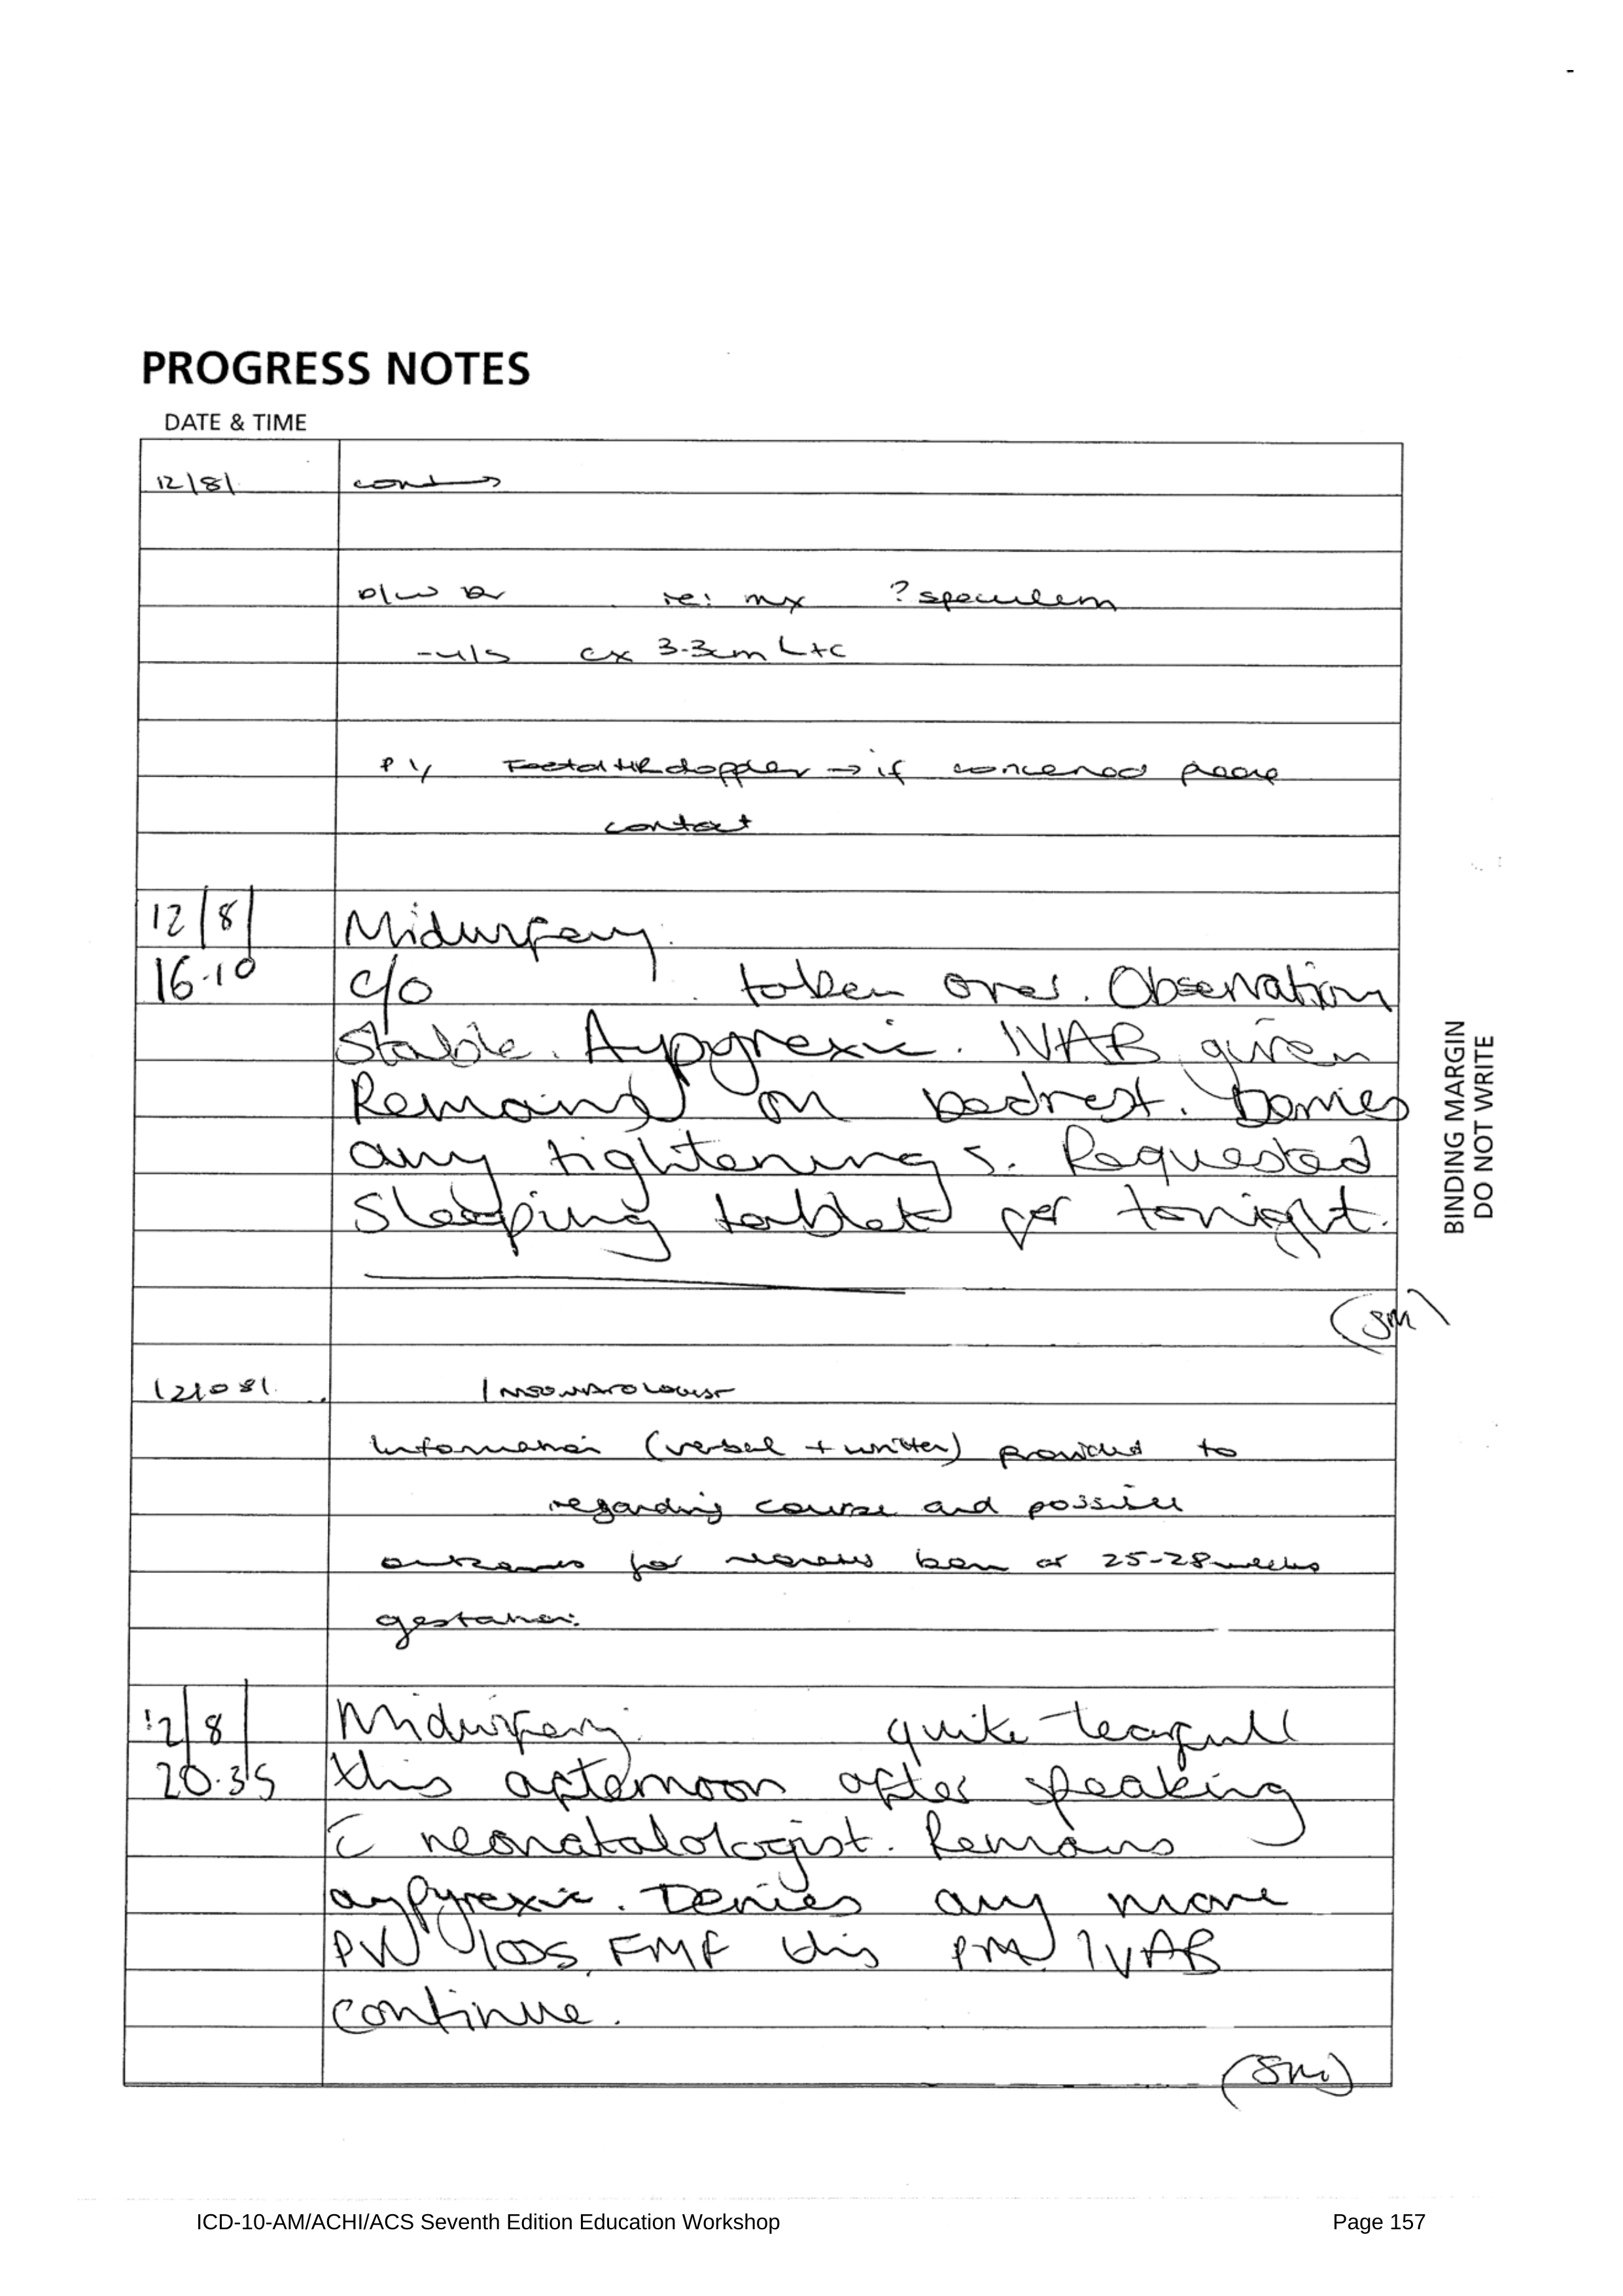 PROGRESS NOTES
DATE & TIME
12/8/
D/W Dr re: mx ? speculum
- U/S cx 3.3cm L+C
P/ Foetal HR doppler → if concerned please
contact
12/8/ Midwifery.
16.10 c/o taken over. Observation
Stable. Aypyrexic. IVAB given
Remains on bedrest. Denies
any tightenings. Requested
Sleeping tablet for tonight.
(SM)
12/08/. / NEONATOLOGIST
Information (verbal + written) provided to
regarding course and possible
outcomes for neonates born at 25-28 weeks
gestation.
12/8/ Midwifery. quite tearfull
20.35 this afternoon after speaking
c̄ neonatalologist. Remains
aypyrexic. Denies any more
PV loss. FMF this PM. IVAB
continue.
(SM)
BINDING MARGIN
DO NOT WRITE
ICD-10-AM/ACHI/ACS Seventh Edition Education Workshop Page 157